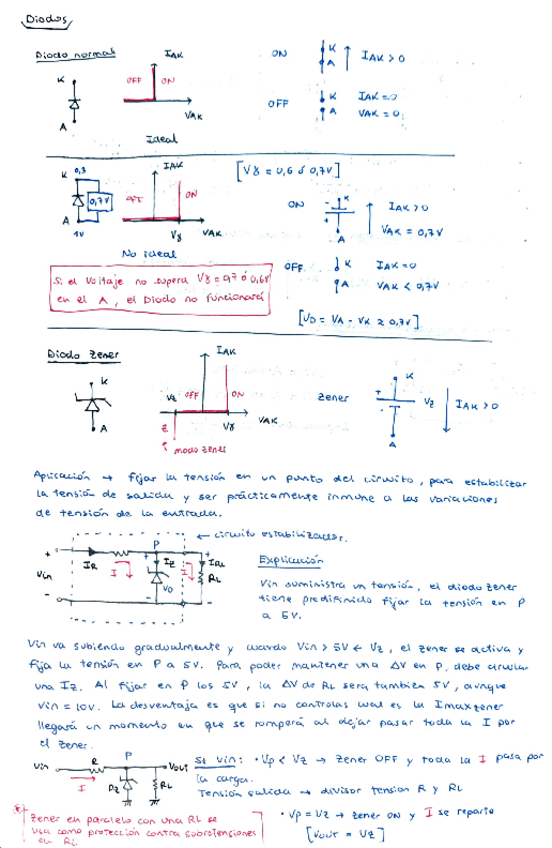 Diodos
Diodo normal
IAK
OFF
ON
VAK
K
A
Ideal
ON
K
A
IAK > 0
OFF
K
A
IAK = 0
VAK = 0
K 0,3
0,7V
A
1V
IAK
OFF
ON
Vγ
VAK
No ideal
[Vγ = 0,6 ó 0,7V]
ON
K
A
IAK > 0
VAK = 0,7V
Si el voltaje no supera Vγ = 0,7 ó 0,6V
en el A, el Diodo no funcionará
OFF
K
A
IAK = 0
VAK < 0,7V
[VD = VA - VK ≥ 0,7V]
Diodo Zener
K
A
IAK
Vz
OFF
ON
Vγ
VAK
Z
modo zener
Zener
K
+
-
Vz
A
IAK > 0
Aplicación → fijar la tensión en un punto del circuito, para estabilizar
la tensión de salida y ser prácticamente inmune a las variaciones
de tensión de la entrada.
← circuito estabilizador.
Vin
+
-
IR
I
P
+
IZ
VD
-
I
IRL
RL
Explicación
Vin suministra un tensión, el diodo zener
tiene predifinido fijar la tensión en P
a 5V.
Vin va subiendo gradualmente y cuando Vin > 5V ← Vz, el zener se activa y
fija la tensión en P a 5V. Para poder mantener una ΔV en P, debe circular
una Iz. Al fijar en P los 5V, la ΔV de RL sera tambien 5V, aunque
Vin = 10V. La desventaja es que si no controlas cual es la Imaxzener
llegará un momento en que se romperá al dejar pasar toda la I por
el zener.
Vin
R
I
P
Vout
Dz
RL
Si Vin: • Vp < Vz → Zener OFF y toda la I pasa por
la carga.
Tensión salida → divisor tension R y RL
• Vp = Vz → zener ON y I se reparte
[Vout = Vz]
Zener en paralelo con una RL se
usa como protección contra sobretensiones
en RL